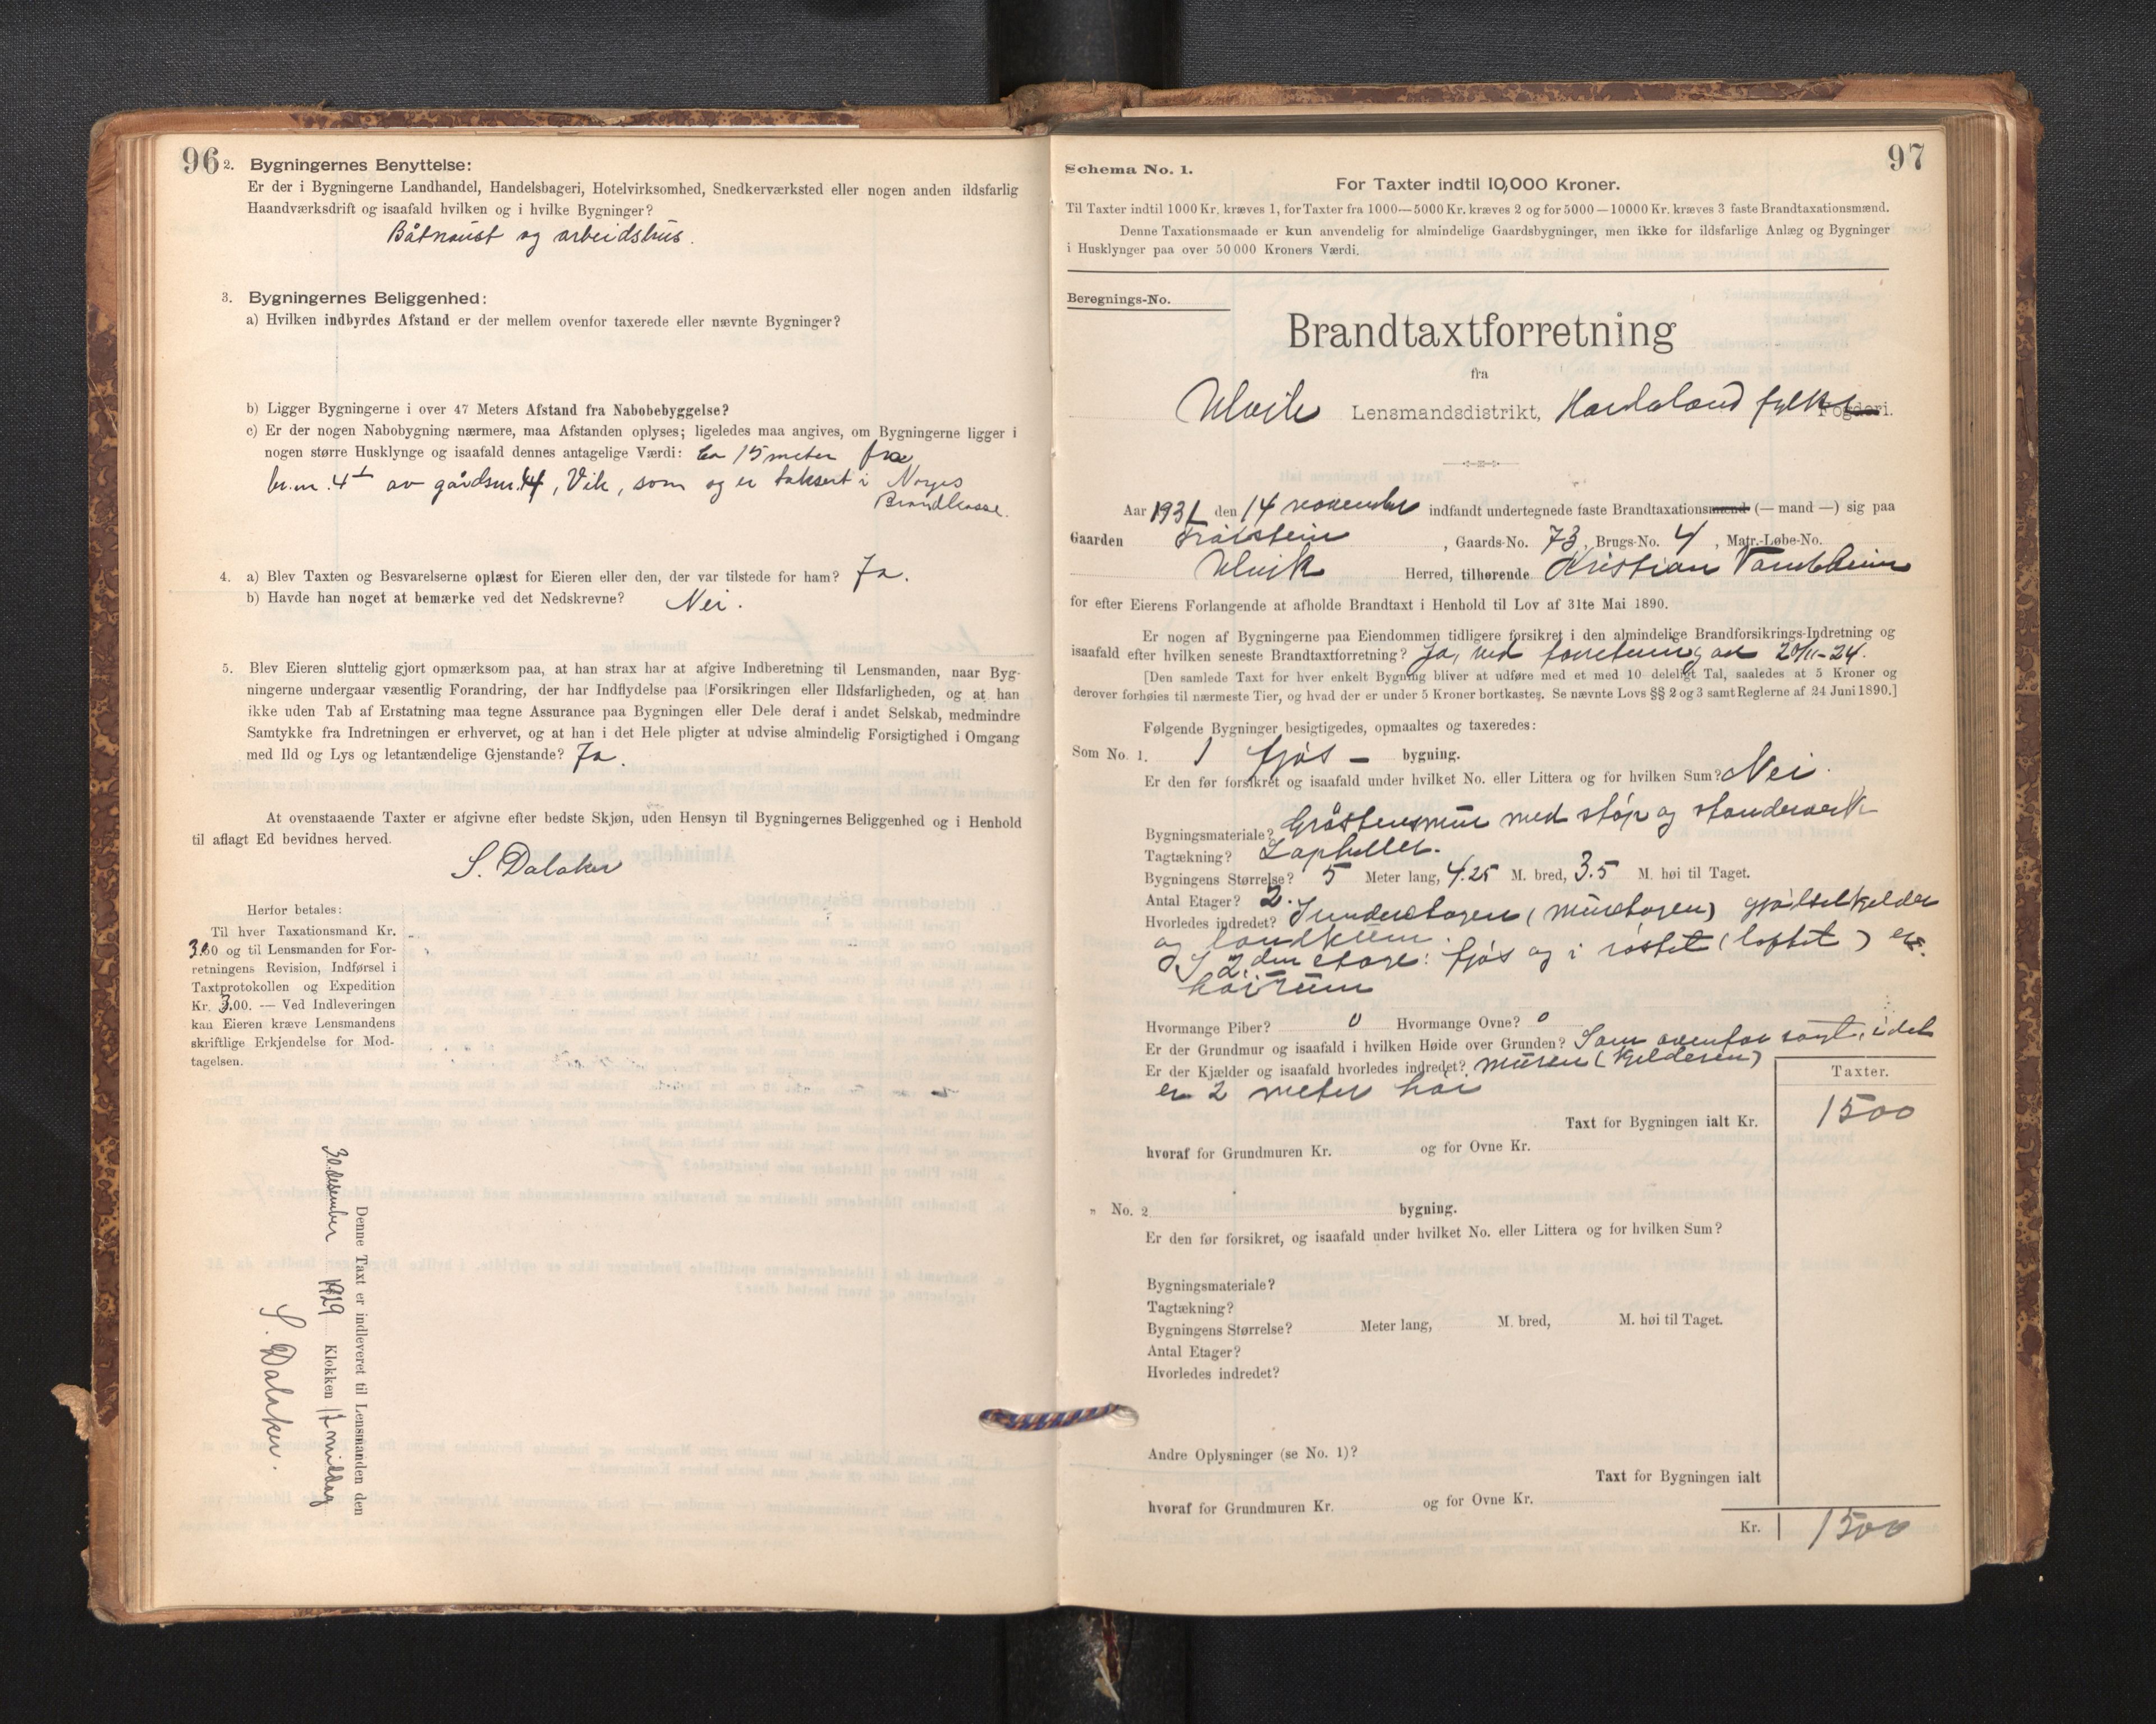 96
2. Bygningernes Benyttelse:
Er der i Bygningerne Landhandel, Handelsbageri, Hotelvirksomhed, Snedkerværksted eller nogen anden ildsfarlig
Haandværksdrift og isaafald hvilken og i hvilke Bygninger?
Båtnaust og arbeidshus.
3. Bygningernes Beliggenhed:
a) Hvilken indbyrdes Afstand er der mellem ovenfor taxerede eller nævnte Bygninger?
b) Ligger Bygningerne i over 47 Meters Afstand fra Nabobebyggelse?
c) Er der nogen Nabobygning nærmere, maa Afstanden oplyses; ligeledes maa angives, om Bygningerne ligger i
nogen større Husklynge og isaafald dennes antagelige Værdi: ca 15 meter fra
br.nr. 4 av gårdsnr. 44, Vik, som og er taksert i Norges
Brandkasse.
4. a) Blev Taxten og Besvarelserne oplæst for Eieren eller den, der var tilstede for ham? Ja.
b) Havde han noget at bemærke ved det Nedskrevne? Nei.
5. Blev Eieren sluttelig gjort opmærksom paa, at han strax har at afgive Indberetning til Lensmanden, naar Byg-
ningerne undergaar væsentlig Forandring, der har Indflydelse paa Forsikringen eller Ildsfarligheden, og at han
ikke uden Tab af Erstatning maa tegne Assurance paa Bygningen eller Dele deraf i andet Selskab, medmindre
Samtykke fra Indretningen er erhvervet, og at han i det Hele pligter at udvise almindelig Forsigtighed i Omgang
med Ild og Lys og letantændelige Gjenstande? Ja.
At ovenstaaende Taxter er afgivne efter bedste Skjøn, uden Hensyn til Bygningernes Beliggenhed og i Henhold
til aflagt Ed bevidnes herved.
S. Dalaker
Herfor betales:
Til hver Taxationsmand Kr.
3.60 og til Lensmanden for For-
retningens Revision, Indførsel i
Taxtprotokollen og Expedition
Kr. 3.00. — Ved Indleveringen
kan Eieren kræve Lensmandens
skriftlige Erkjendelse for Mod-
tagelsen.
Denne Taxt er indleveret til Lensmanden den
30. desember 1929 Klokken 12 middag
S. Dalaker.
97
Schema No. 1.
For Taxter indtil 10,000 Kroner.
Til Taxter indtil 1000 Kr. kræves 1, for Taxter fra 1000—5000 Kr. kræves 2 og for 5000—10000 Kr. kræves 3 faste Brandtaxationsmænd.
Denne Taxationsmaade er kun anvendelig for almindelige Gaardsbygninger, men ikke for ildsfarlige Anlæg og Bygninger
i Husklynger paa over 50 000 Kroners Værdi.
Beregnings-No.
Brandtaxtforretning
fra
Ulvik Lensmandsdistrikt, Hordaland fylke Fogderi.
Aar 1931 den 14 november indfandt undertegnede faste Brandtaxationsmænd (— mand —) sig paa
Gaarden Trålstein, Gaards-No. 73, Brugs-No. 4, Matr.-Løbe-No.
Ulvik Herred, tilhørende Kristian Vambheim
for efter Eierens Forlangende at afholde Brandtaxt i Henhold til Lov af 31te Mai 1890.
Er nogen af Bygningerne paa Eiendommen tidligere forsikret i den almindelige Brandforsikrings-Indretning og
isaafald efter hvilken seneste Brandtaxtforretning? Ja, ved forretning av 20/11-24.
[Den samlede Taxt for hver enkelt Bygning bliver at udføre med et med 10 deleligt Tal, saaledes at 5 Kroner og
derover forhøies til nærmeste Tier, og hvad der er under 5 Kroner bortkastes. Se nævnte Lovs §§ 2 og 3 samt Reglerne af 24 Juni 1890.]
Følgende Bygninger besigtigedes, opmaaltes og taxeredes:
Som No. 1. 1 fjøs - bygning.
Er den før forsikret og isaafald under hvilket No. eller Littera og for hvilken Sum? Nei.
Bygningsmateriale? Gråstensmur med støp og standerverk
Tagtækning? Zapheller.
Bygningens Størrelse? 5 Meter lang, 4.25 M. bred, 3.5 M. høi til Taget.
Antal Etager? 2.
Hvorledes indredet? I underetagen (muretagen) gjødselkjelder
og landkum.
I 2. den etage: fjøs og i røstet (loftet) er
høirum
Hvormange Piber? 0 Hvormange Ovne? 0
Er der Grundmur og isaafald i hvilken Høide over Grunden? Som ovenfor sagt, idet
Er der Kjælder og isaafald hvorledes indredet? muren (kjelderen)
er 2 meter høi
Taxter.
Taxt for Bygningen ialt Kr. 1500
hvoraf for Grundmuren Kr. og for Ovne Kr.
" No. 2 bygning.
Er den før forsikret, og isaafald under hvilket No. eller Littera og for hvilken Sum?
Bygningsmateriale?
Tagtækning?
Bygningens Størrelse? Meter lang, M. bred, M. høi til Taget.
Antal Etager?
Hvorledes indredet?
Andre Oplysninger (se No. 1)?
Taxt for Bygningen ialt
hvoraf for Grundmuren Kr. og for Ovne Kr.
Kr. 1500